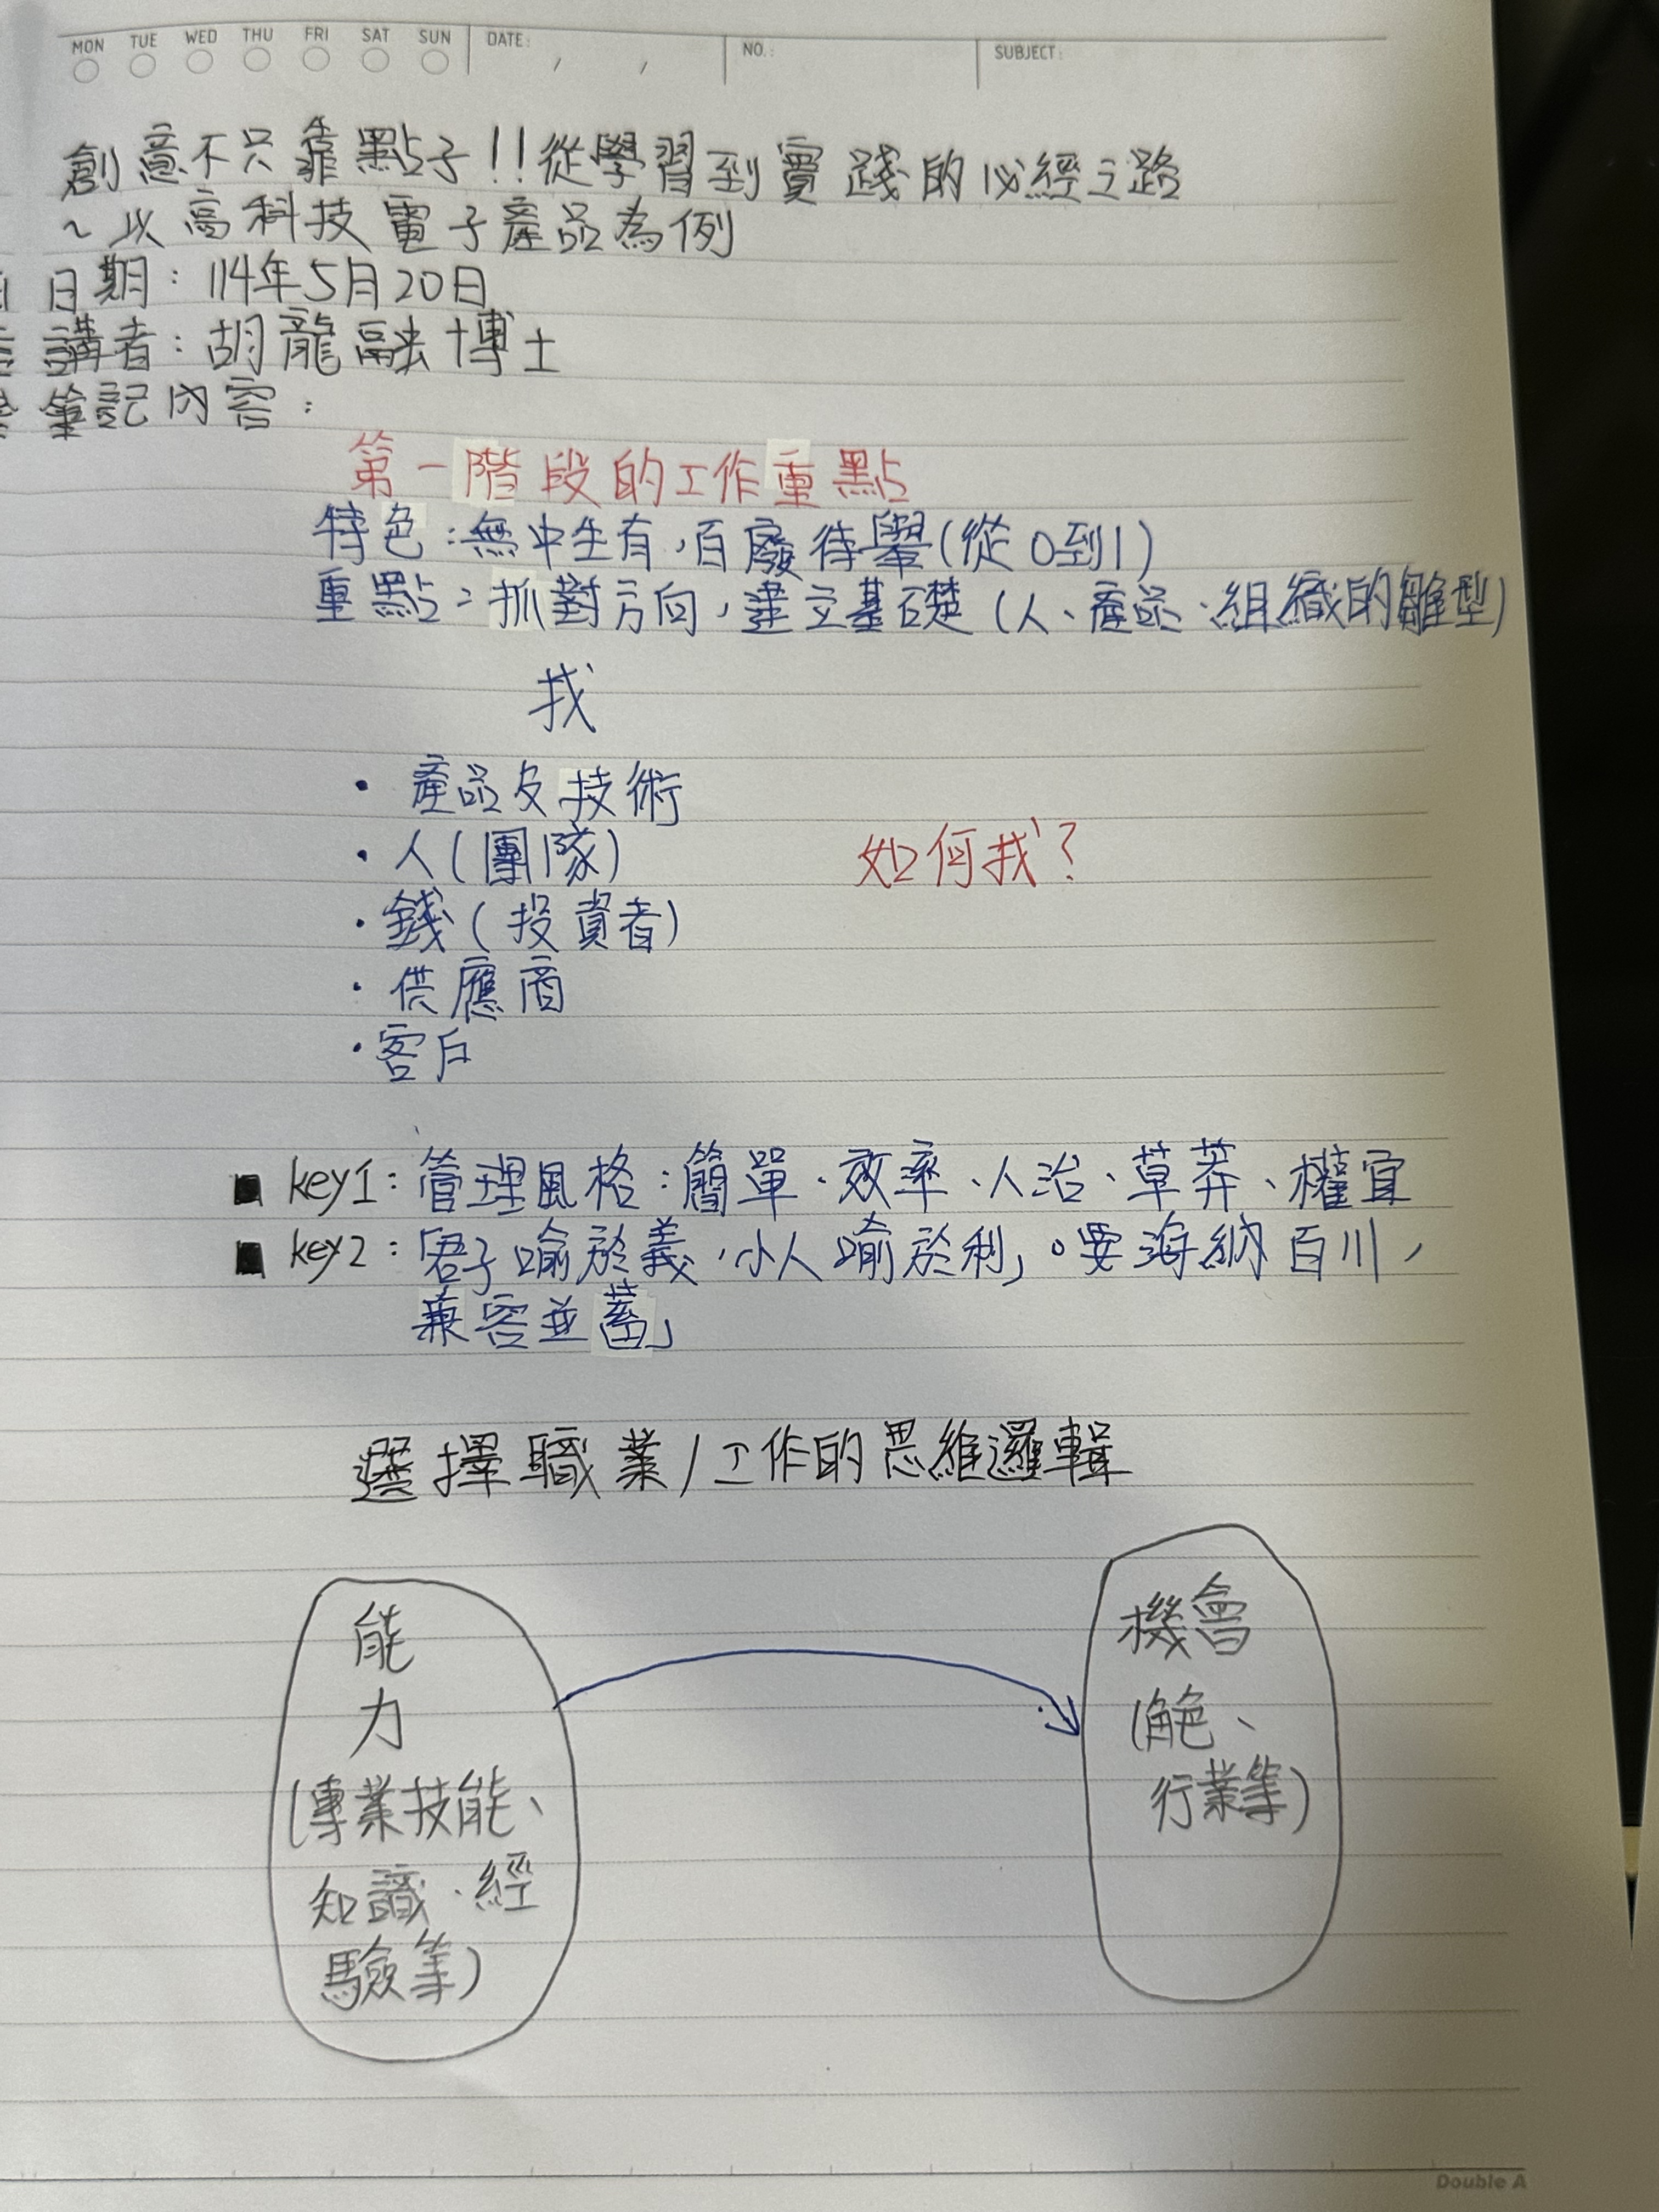 MON TUE WED THU FRI SAT SUN DATE: / / NO.: SUBJECT:
創意不只靠點子!!從學習到實踐的必經之路
~以高科技電子產品為例
日期:114年5月20日
講者:胡龍融博士
筆記內容:
第一階段的工作重點
特色:無中生有,百廢待舉(從0到1)
重點:抓對方向,建立基礎(人、產品、組織的雛型)
找
・產品及技術
・人(團隊)
如何找?
・錢(投資者)
・供應商
・客戶
■ key1:管理風格:簡單、效率、人治、草莽、權宜
■ key2:「君子喻於義,小人喻於利」。要海納百川,
兼容並蓄」
選擇職業/工作的思維邏輯
能
力
(專業技能、
知識、經
驗等)
機會
(角色、
行業等)
Double A